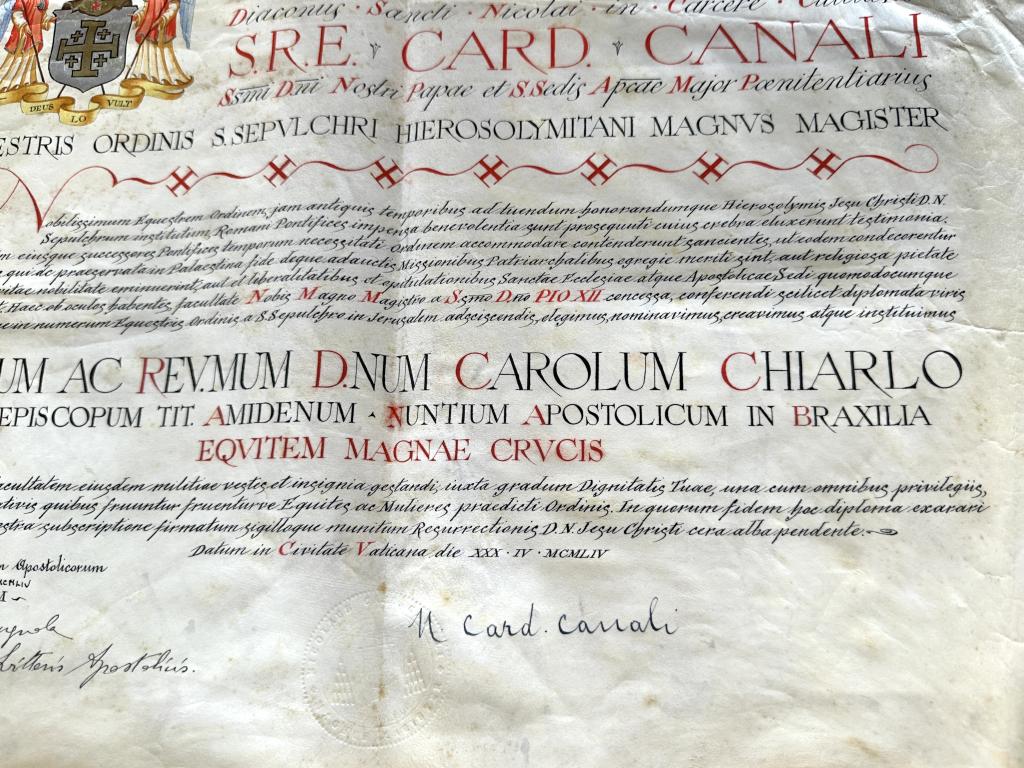 Diaconus · Sancti · Nicolai · in · Carcere ·
S.R.E. CARD. CANALI
Ssmi Dni Nostri Papae et S. Sedis Apcae Major Pœnitentiarius
DEUS LO VULT
ESTRIS ORDINIS S. SEPVLCHRI HIEROSOLYMITANI MAGNVS MAGISTER
Nobilissimum Equestrem Ordinem, jam antiquis temporibus ad tuendum honorandumque Hierosolymis Jesu Christi D.N.
Sepulchrum institutum, Romani Pontifices impensa benevolentia sunt prosequuti cuius crebra eluxerunt testimonia.
eiusque successores Pontifices temporum necessitati Ordinem accommodare contenderunt sancientes, ut eodem condecorentur
qui de praeservata in Palaestina fide deque adauctis Missionibus Patriarchalibus egregie meriti sint, aut religiosa pietate
nobilitate eminuerint, aut et liberalitatibus et opitulationibus Sanctae Ecclesiae atque Apostolicae Sedi quomodocumque
Haec ob oculos habentes, facultate Nobis Magno Magistro a Ssmo D.no PIO XII concessa, conferendi scilicet diplomata viris
in numerum Equestris Ordinis a S. Sepulchro in Jerusalem adsciscendis, elegimus, nominavimus, creavimus atque instituimus
UM AC REV.MUM D.NUM CAROLUM CHIARLO
EPISCOPUM TIT. AMIDENUM · NUNTIUM APOSTOLICUM IN BRAXILIA
EQVITEM MAGNAE CRVCIS
facultatem eiusdem militiae vestis et insignia gestandi, iuxta gradum Dignitatis Tuae, una cum omnibus privilegiis,
quibus fruuntur fruenturve Equites ac Mulieres praedicti Ordinis. In quorum fidem hoc diploma exarari
subscriptione firmatum sigilloque munitum Resurrectionis D.N. Jesu Christi cera alba pendente.
Datum in Civitate Vaticana, die XXX · IV · MCMLIV
Apostolicorum
N Card. Canali
Litteris Apostolicis.